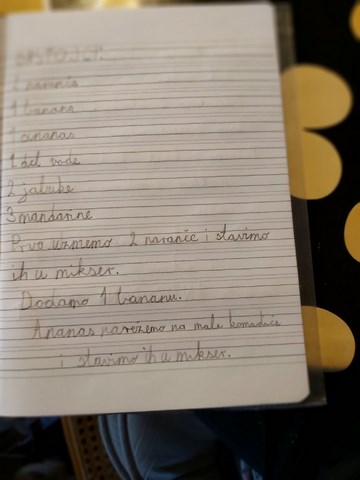 SASTOJCI:
2 naranče
1 banana
1 ananas
1 dcl vode
2 jabuke
3 mandarine
Prvo uzmemo 2 naranče i stavimo
ih u mikser.
Dodamo 1 bananu.
Ananas narežemo na male komadiće
i stavimo ih u mikser.